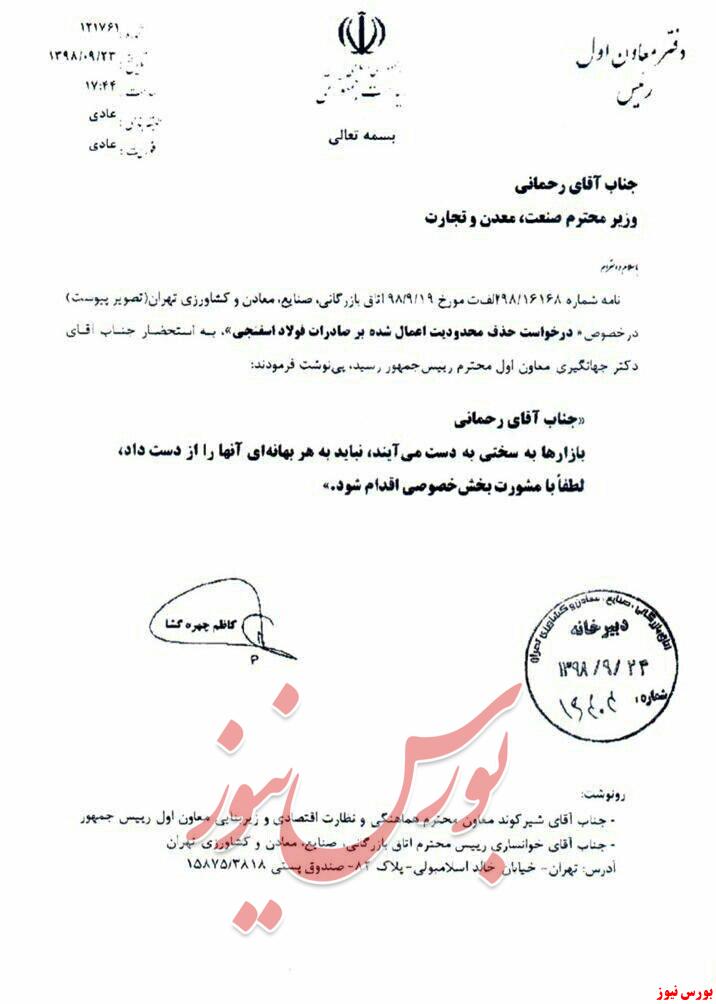 دفتر معاون اول
رئیس
شماره: ۱۲۱۷۶۱
تاریخ: ۱۳۹۸/۰۹/۲۳
ساعت: ۱۷:۴۴
عادی
فوریت: عادی
بسمه تعالی
جناب آقای رحمانی
وزیر محترم صنعت، معدن و تجارت
با سلام و احترام
نامه شماره ۲۹۸/۱۶۱۶۸الف‌ت مورخ ۹۸/۹/۱۹ اتاق بازرگانی، صنایع، معادن و کشاورزی تهران(تصویر پیوست)
درخصوص« درخواست حذف محدودیت اعمال شده بر صادرات فولاد اسفنجی»، به استحضار جناب آقای
دکتر جهانگیری معاون اول محترم رییس‌جمهور رسید، پی‌نوشت فرمودند:
«جناب آقای رحمانی
بازارها به سختی به دست می‌آیند، نباید به هر بهانه‌ای آنها را از دست داد،
لطفاً با مشورت بخش‌خصوصی اقدام شود.»
کاظم چهره گشا
اتاق بازرگانی، صنایع، معادن و کشاورزی تهران
دبیرخانه
۱۳۹۸/۹/۲۴
شماره:
بورس نیوز
رونوشت:
- جناب آقای شیرکوند معاون محترم هماهنگی و نظارت اقتصادی و زیربنایی معاون اول رییس جمهور
- جناب آقای خوانساری رییس محترم اتاق بازرگانی، صنایع، معادن و کشاورزی تهران
آدرس: تهران- خیابان خالد اسلامبولی-پلاک ۸۲- صندوق پستی ۱۵۸۷۵/۳۸۱۸
بورس نیوز